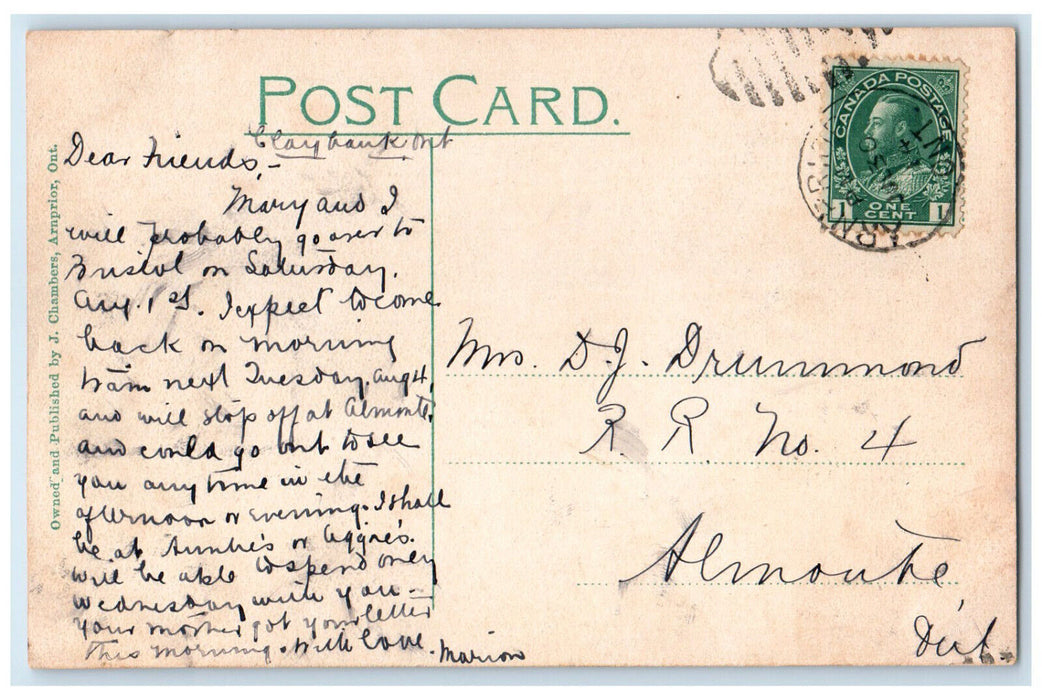 POST CARD.
Claybank Ont
Dear Friends,-
Mary and I
will probably go over to
Bristol on Saturday,
Aug. 1st. I expect to come
back on morning
train next Tuesday, Aug 4,
and will stop off at Almonte,
and could go out to see
you any time in the
afternoon or evening. I shall
be at Auntie's or Aggie's.
Will be able to spend only
Wednesday with you -
Your mother got your letter
this morning. With love.
Marion
Owned and Published by J. Chambers, Arnprior, Ont.
CANADA POSTAGE
1 ONE CENT 1
ARNPRIOR
PM
JY 30
14
ONT.
Mrs. D. J. Drummond
R. R. No. 4
Almonte,
Ont.